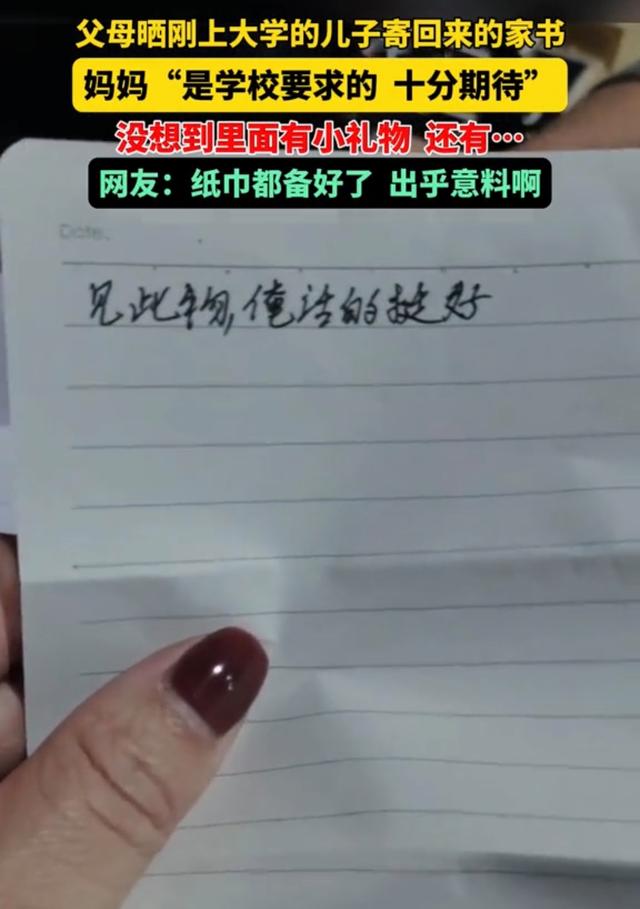 父母晒刚上大学的儿子寄回来的家书
妈妈“是学校要求的 十分期待”
没想到里面有小礼物 还有…
网友：纸巾都备好了 出乎意料啊
Date.
见此物，俺活的挺好